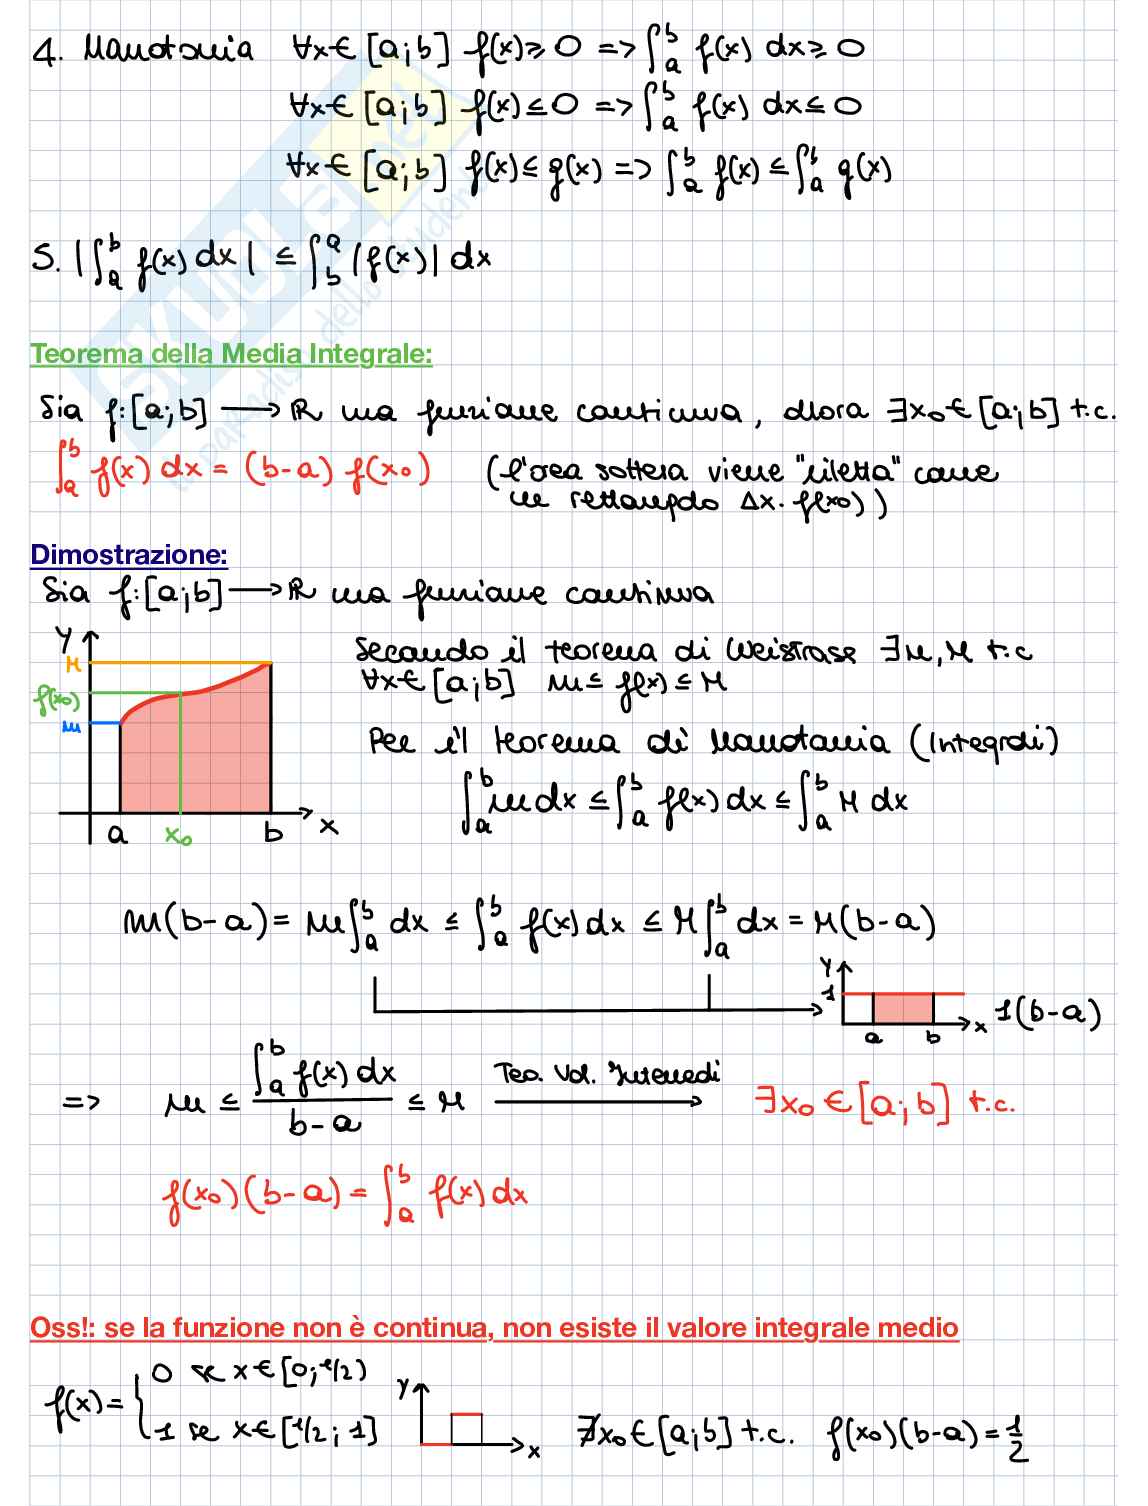 4. Monotonia ∀x∈ [a;b] f(x)≥ 0 => ∫_a^b f(x) dx ≥ 0
∀x∈ [a;b] f(x) ≤ 0 => ∫_a^b f(x) dx ≤ 0
∀x∈ [a;b] f(x) ≤ g(x) => ∫_a^b f(x) ≤ ∫_a^b g(x)
5. |∫_a^b f(x) dx| ≤ ∫_b^a |f(x)| dx
Teorema della Media Integrale:
Sia f:[a;b] ⟶ ℝ una funzione continua, allora ∃x₀∈ [a;b] t.c.
∫_a^b f(x) dx = (b-a) f(x₀) (l'area sottesa viene "riletta" come
un rettangolo Δx·f(x₀))
Dimostrazione:
Sia f:[a;b] ⟶ ℝ una funzione continua
y M f(x₀) m a x₀ b x
Secondo il teorema di Weistrase ∃m,M t.c
∀x∈ [a;b] m ≤ f(x) ≤ M
Per il teorema di Monotonia (Integrali)
∫_a^b m dx ≤ ∫_a^b f(x) dx ≤ ∫_a^b M dx
m(b-a) = m∫_a^b dx ≤ ∫_a^b f(x) dx ≤ M∫_a^b dx = M(b-a)
y 1 a b x 1(b-a)
=> m ≤ ∫_a^b f(x) dx / b-a ≤ M Teo. Val. Intermedi ∃x₀ ∈ [a;b] t.c.
f(x₀)(b-a) = ∫_a^b f(x) dx
Oss!: se la funzione non è continua, non esiste il valore integrale medio
f(x) = { 0 se x∈ [0;1/2)
1 se x∈ [1/2;1]
y x ∄x₀∈ [a;b] t.c. f(x₀)(b-a) = 1/2
SKUOLA.net